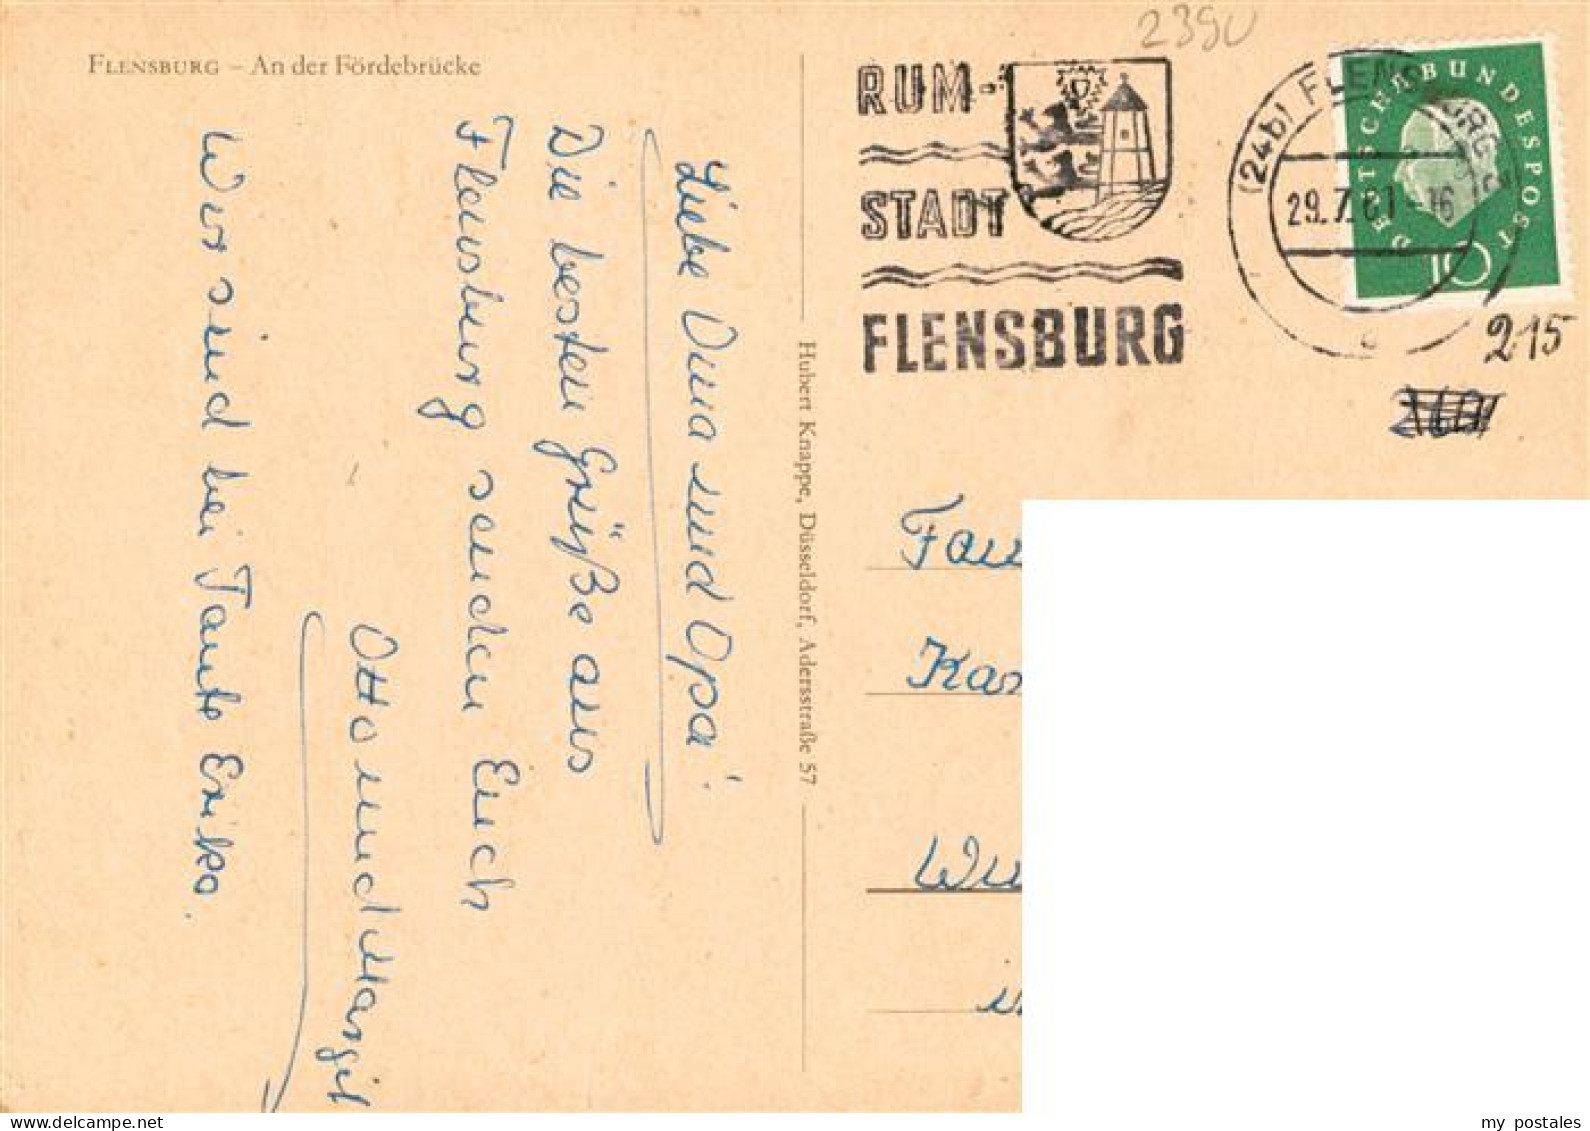 FLENSBURG – An der Fördebrücke
Liebe Oma und Opa!
Die besten Grüße aus
Flensburg senden Euch
Otto und Margit
Wir sind bei Tante Erika.
Hubert Knappe, Düsseldorf, Adersstraße 57
2390
RUM-
STADT
FLENSBURG
(24b) FLENSBURG
29.7.61-16
DEUTSCHE BUNDESPOST
10
215
Fam
Kar
Wu
my postales